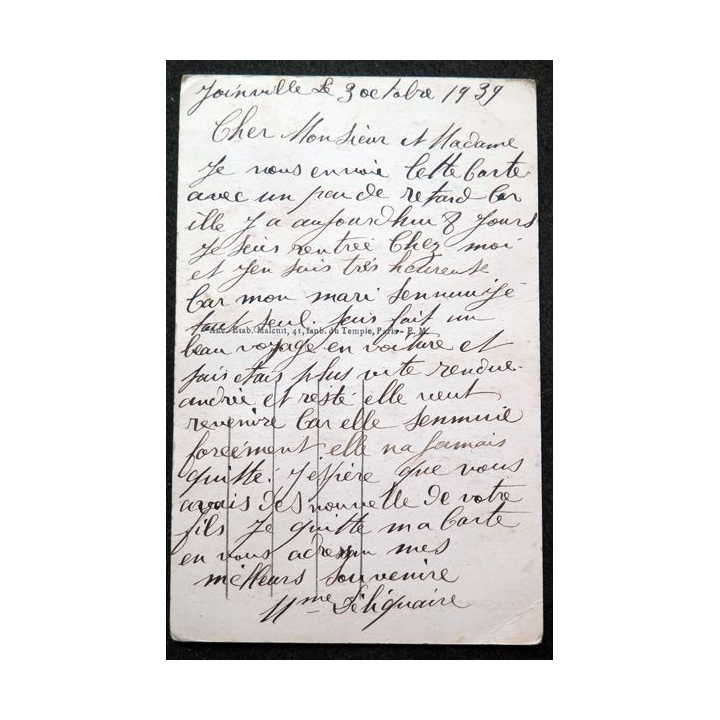 Joinville Le 3 octobre 1939
Cher Monsieur et Madame
Je vous envoie cette Carte
avec un peu de retard Car
ille y a aujourdhui 8 Jours
Je suis rentrée Chez moi
et J'en suis très heureuse
Car mon mari sennuyé
tout seul. Jais fait un
Anc. Etab. Malcuit, 41, faub. du Temple, Paris - E. M.
beau voyage en voiture et
jais étais plus vite rendue
andrée et resté elle veut
revenire Car elle sennuie
forcément elle na Jamais
quitté. J'espère que vous
avais des nouvelle de votre
fils Je quitte ma Carte
en vous adressan mes
meilleurs Souvenire
Mme